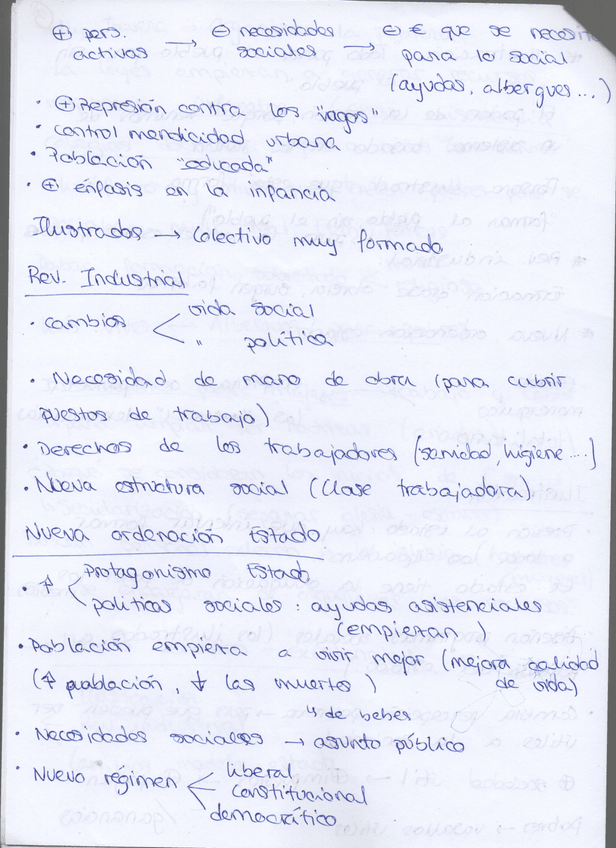 ⊕ pers. activas → ⊖ necesidades sociales → ⊖ € que se necesitan para lo social
(ayudas, albergues...)
· ⊕ Represión contra los "vagos"
· control mendicidad urbana
· Población "educada"
· ⊕ enfasis en la infancia
Ilustrados → colectivo muy formado
Rev. Industrial
· cambios < vida social
" política
· Necesidad de mano de obra (para cubrir
puestos de trabajo)
· Derechos de los trabajadores (sanidad, higiene...)
· Nueva estructura social (Clase trabajadora)
Nueva ordenación Estado
· ↑ < Protagonismo Estado
políticas sociales: ayudas asistenciales
(empiezan)
· Población empieza a vivir mejor (mejora calidad
de vida)
(↑ población, ↓ las muertes)
↳ de bebes
· Necesidades sociales → asunto público
· Nuevo régimen < liberal
constitucional
democrático